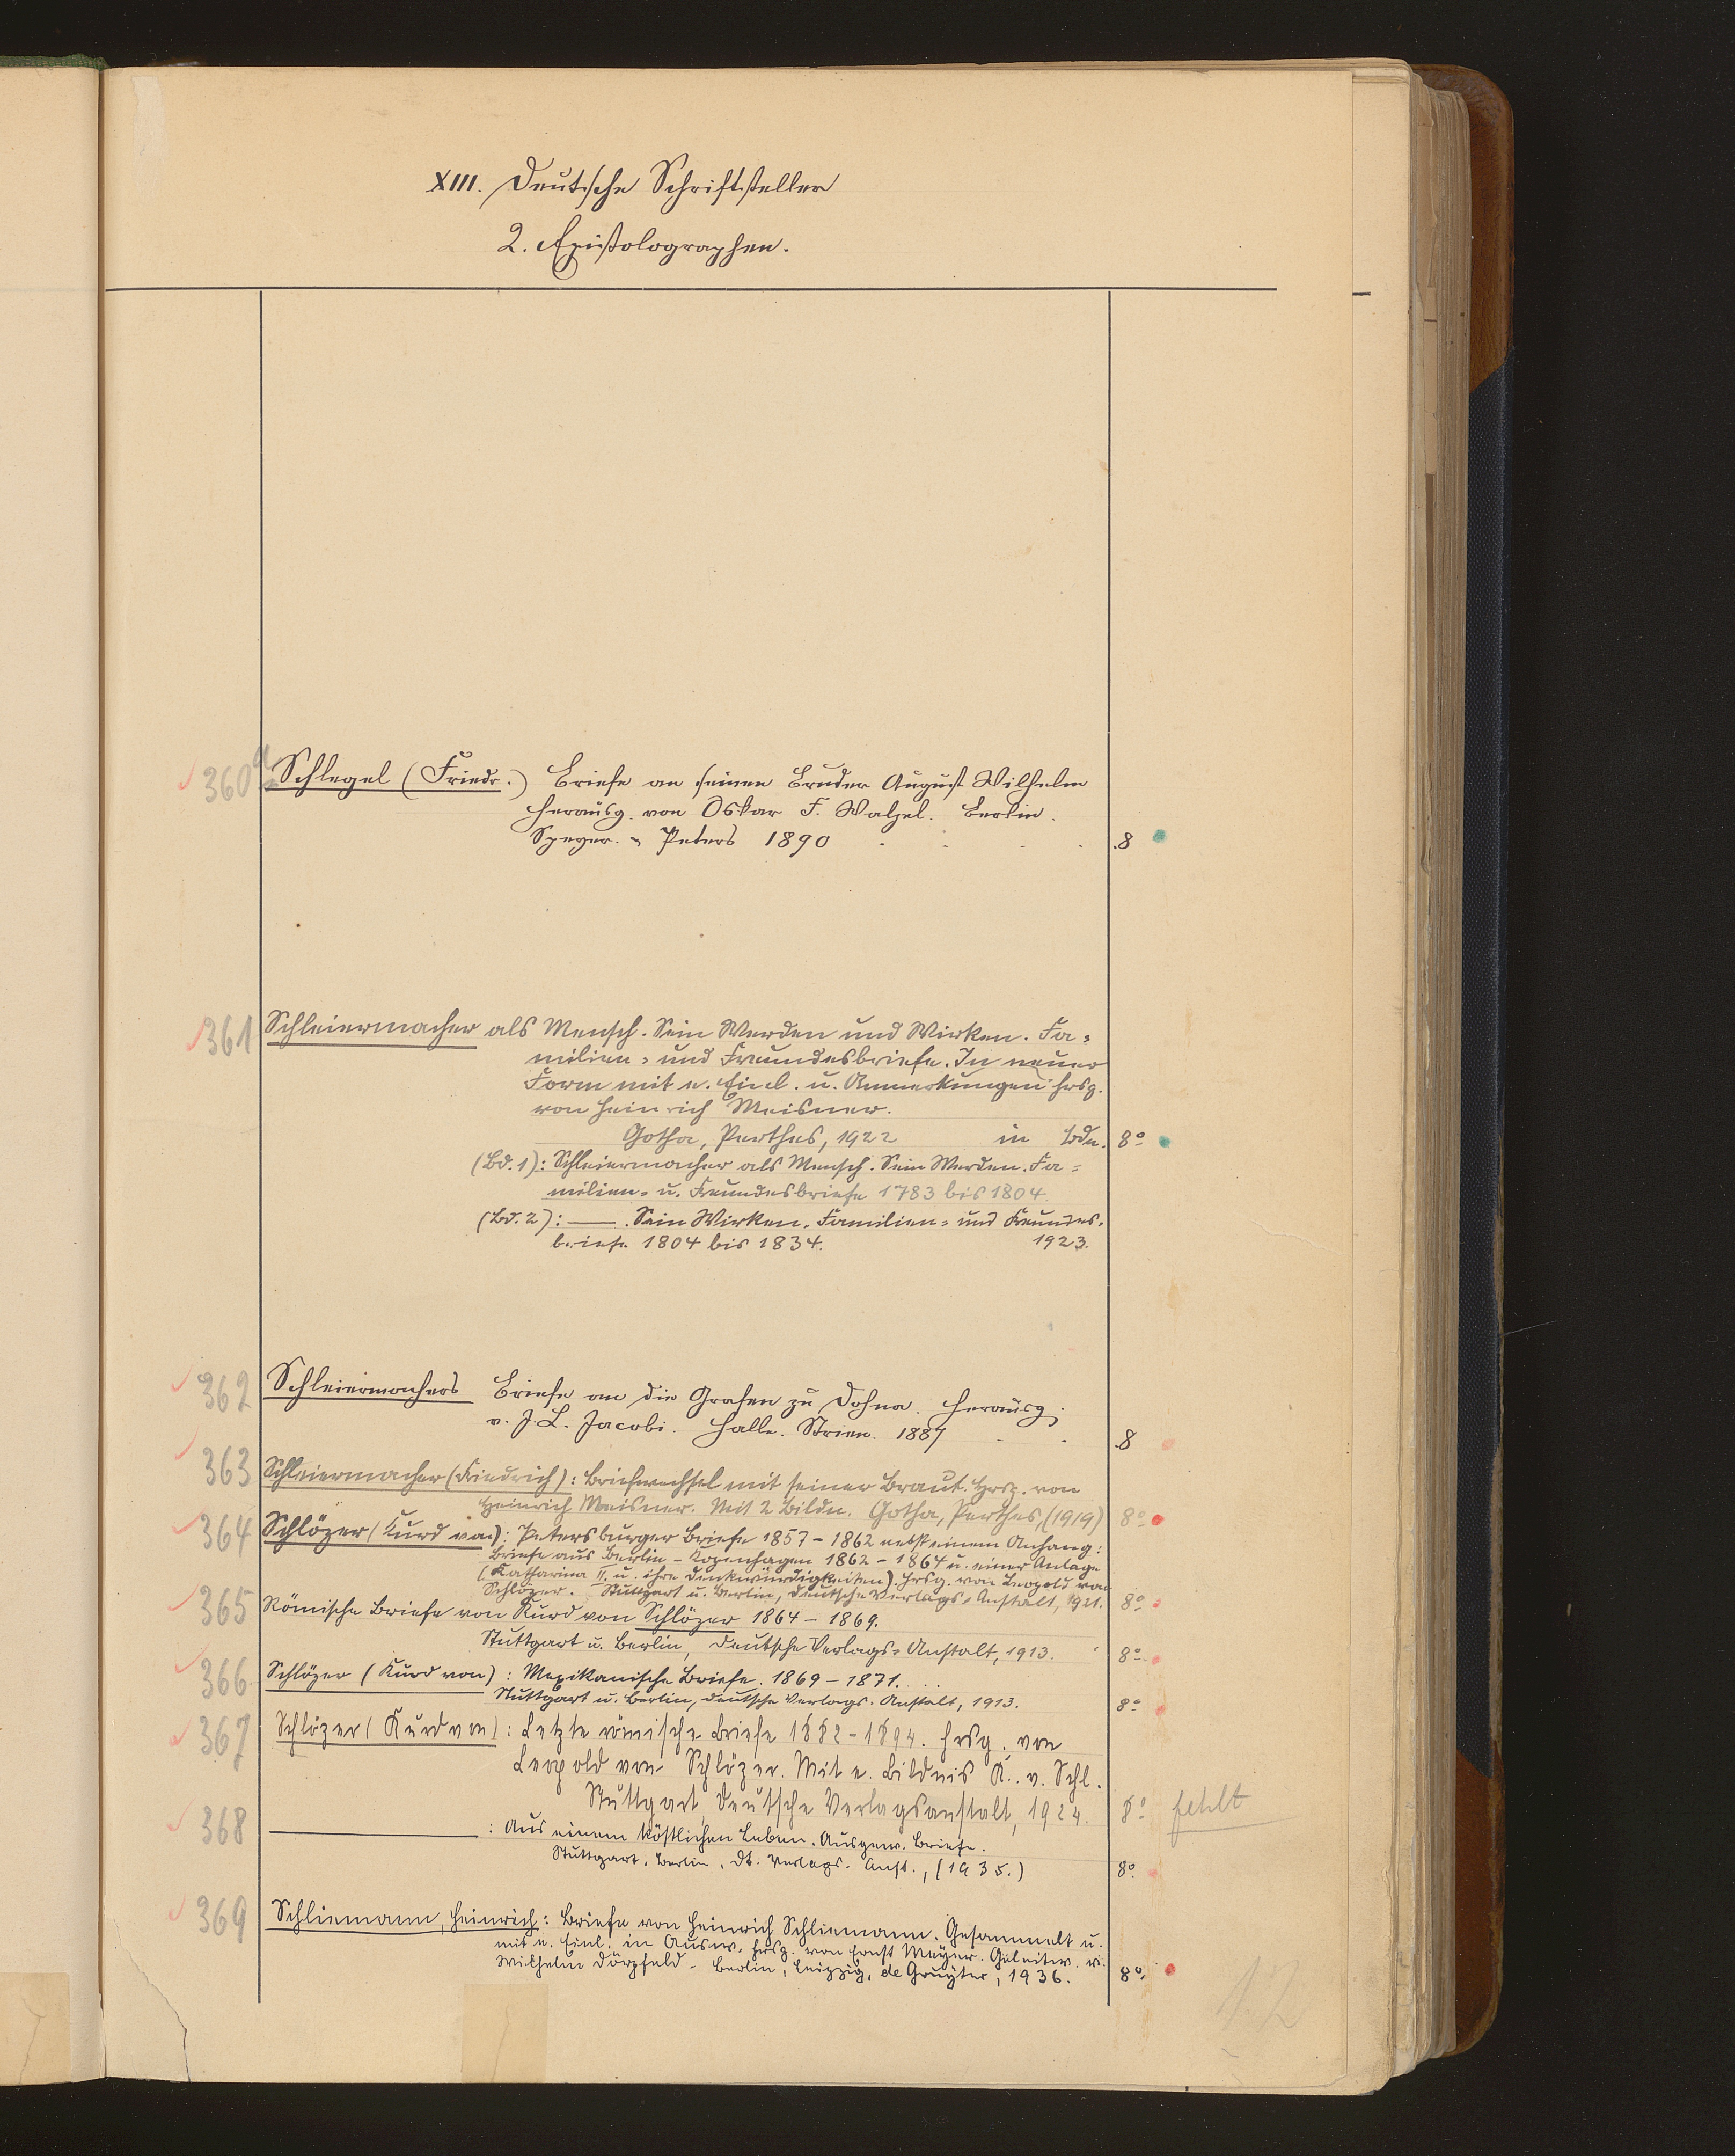 XIII. Deutsche Schriftsteller
2. Epistolographen.
360a Schlegel (Friedr.) Briefe an seinen Bruder August Wilhelm
herausg. von Oskar F. Walzel. Berlin.
Speyer. & Peters 1890 . . . . 8
361 Schleiermacher als Mensch. Sein Werden und Wirken. Fa-
milien- und Freundesbriefe. In neuer
Form mit e. Einl. u. Anmerkungen hrsg.
von Heinrich Meisner.
Gotha, Perthes, 1922 in Bdn. 8°
(Bd. 1): Schleiermacher als Mensch. Sein Werden. Fa-
milien- u. Freundesbriefe 1783 bis 1804.
(Bd. 2): — . Sein Wirken. Familien- und Freundes-
briefe 1804 bis 1834. 1923.
362 Schleiermachers Briefe an die Grafen zu Dohna. Herausg.
v. J. L. Jacobi. Halle. Strien. 1887 . . 8
363 Schleiermacher (Friedrich): Briefwechsel mit seiner Braut. Hrsg. von
Heinrich Meisner. Mit 2 Bildn. Gotha, Perthes, (1919) 8°
364 Schlözer (Kurd von): Petersburger Briefe 1857-1862 nebst einem Anhang:
Briefe aus Berlin - Kopenhagen 1862-1864 u. einer Anlage
(Katharina II. u. ihre Denkwürdigkeiten). Hrsg. von Leopold von
Schlözer. Stuttgart u. Berlin, Deutsche Verlags-Anstalt, 1921. 8°
365 Römische Briefe von Kurd von Schlözer 1864-1869.
Stuttgart u. Berlin, Deutsche Verlags-Anstalt, 1913. 8°
366 Schlözer (Kurd von): Mexikanische Briefe. 1869-1871. . .
Stuttgart u. Berlin, Deutsche Verlags-Anstalt, 1913. 8°
367 Schlözer (Kurd von): Letzte römische Briefe 1882-1894. Hrsg. von
Leopold von Schlözer. Mit e. Bildnis K. v. Schl.
Stuttgart, Deutsche Verlagsanstalt, 1924. 8° fehlt
368 — : Aus einem köstlichen Leben. Ausgew. Briefe.
Stuttgart, Berlin, Dt. Verlags-Anst., (1935.) 8°
369 Schliemann, Heinrich: Briefe von Heinrich Schliemann. Gesammelt u.
mit e. Einl. in Ausw. hrsg. von Ernst Meyer. Geleitw. v.
Wilhelm Dörpfeld. Berlin, Leipzig, de Gruyter, 1936. 8°